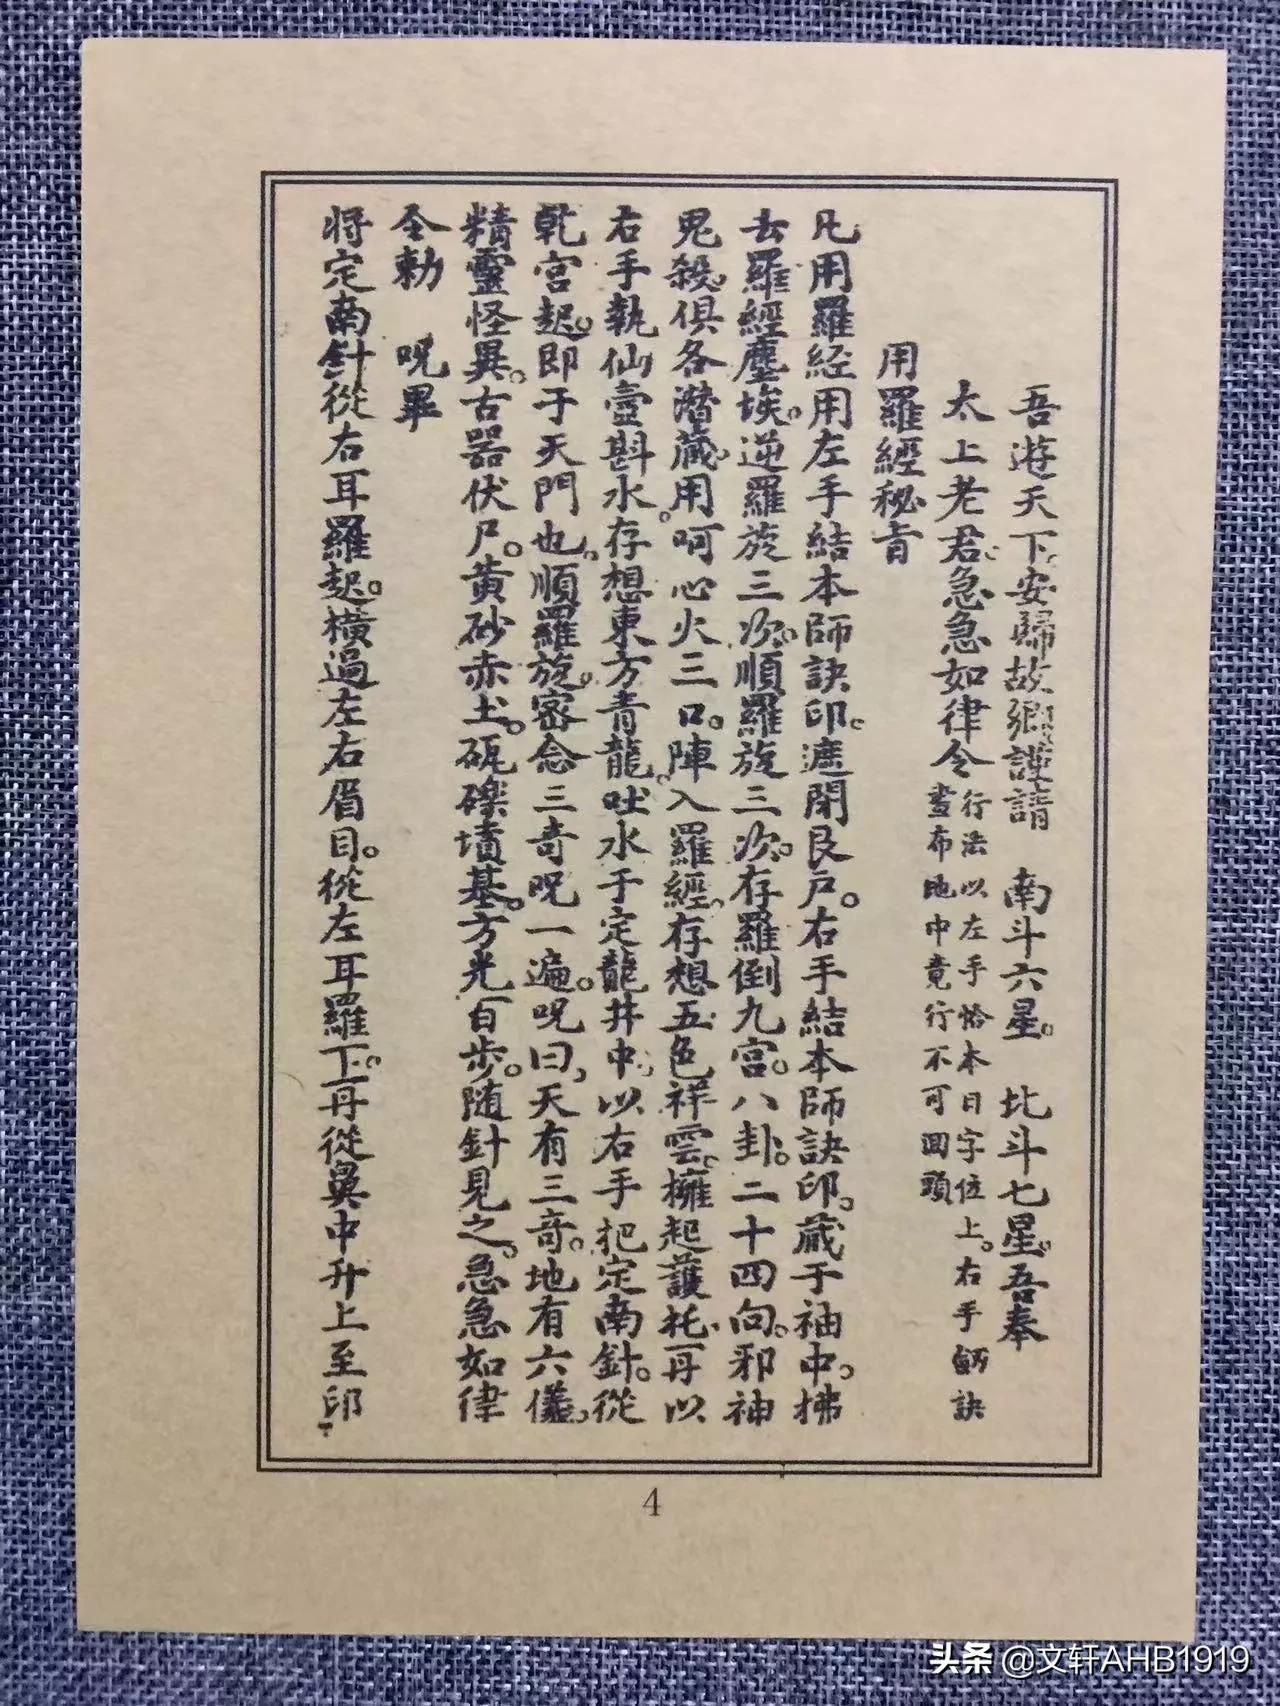 吾遊天下、安歸故鄉謹請　南斗六星。　北斗七星。吾奉
太上老君。急急如律令
行法以左手恰本日字位上。右手劒訣
畫布地中竟行不可回頭
用羅經秘旨
凡用羅经用左手結本師訣印。遮閉艮戶。右手結本師訣印。蔵于袖中。拂
去羅經塵埃。逆羅旋三次。順羅旋三次。存羅倒九宮。八卦。二十四向。邪神
鬼殺。俱各潜藏。用呵心火三口。陣入羅經。存想五色祥雲。擁起護托。再以
右手執仙壺斟水。存想東方青龍。吐水于定龍井中。以右手把定南針。從
乾宮起。即于天門也。順羅旋。密念三奇呪一遍。呪曰，天有三奇。地有六儀。
精靈怪異。古器伏尸。黃砂赤土。砙礫墳基。方光百步。随針見之。急急如律
令勅　呪畢
将定南針從右耳羅起。橫過左右眉目。從左耳羅下。再從鼻中升上至印
4
头条 @文轩AHB1919